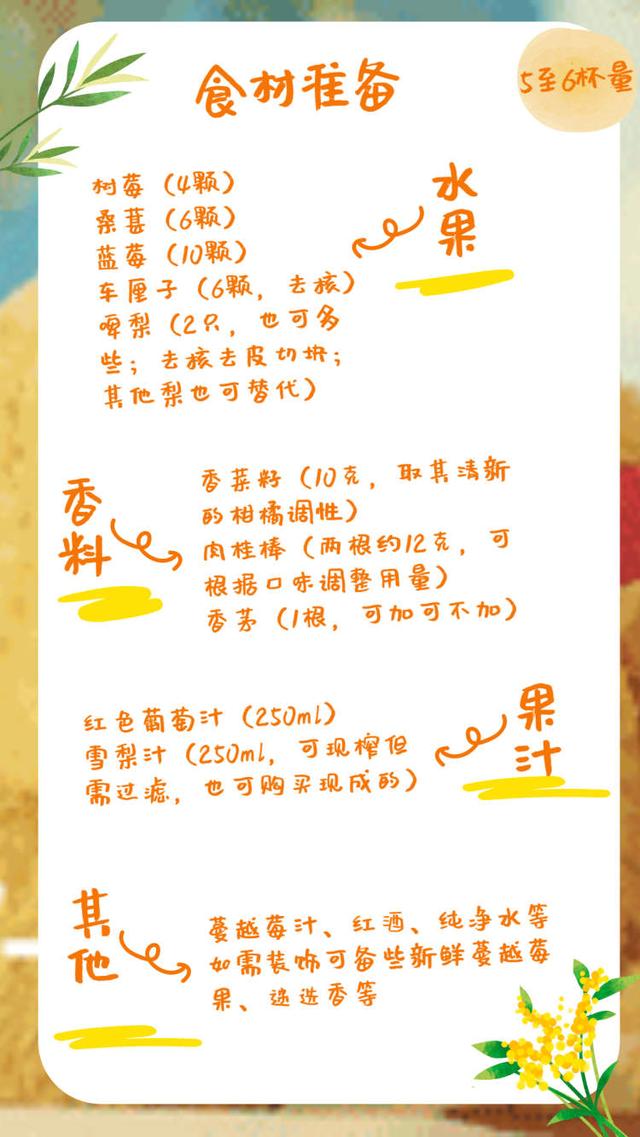 食材准备
5至6杯量
水果
树莓（4颗）
桑葚（6颗）
蓝莓（10颗）
车厘子（6颗，去核）
啤梨（2只，也可多
些；去核去皮切块；
其他梨也可替代）
香料
香菜籽（10克，取其清新
的柑橘调性）
肉桂棒（两根约12克，可
根据口味调整用量）
香茅（1根，可加可不加）
果汁
红色葡萄汁（250ml）
雪梨汁（250ml，可现榨但
需过滤，也可购买现成的）
其他
蔓越莓汁、红酒、纯净水等
如需装饰可备些新鲜蔓越莓
果、迷迭香等